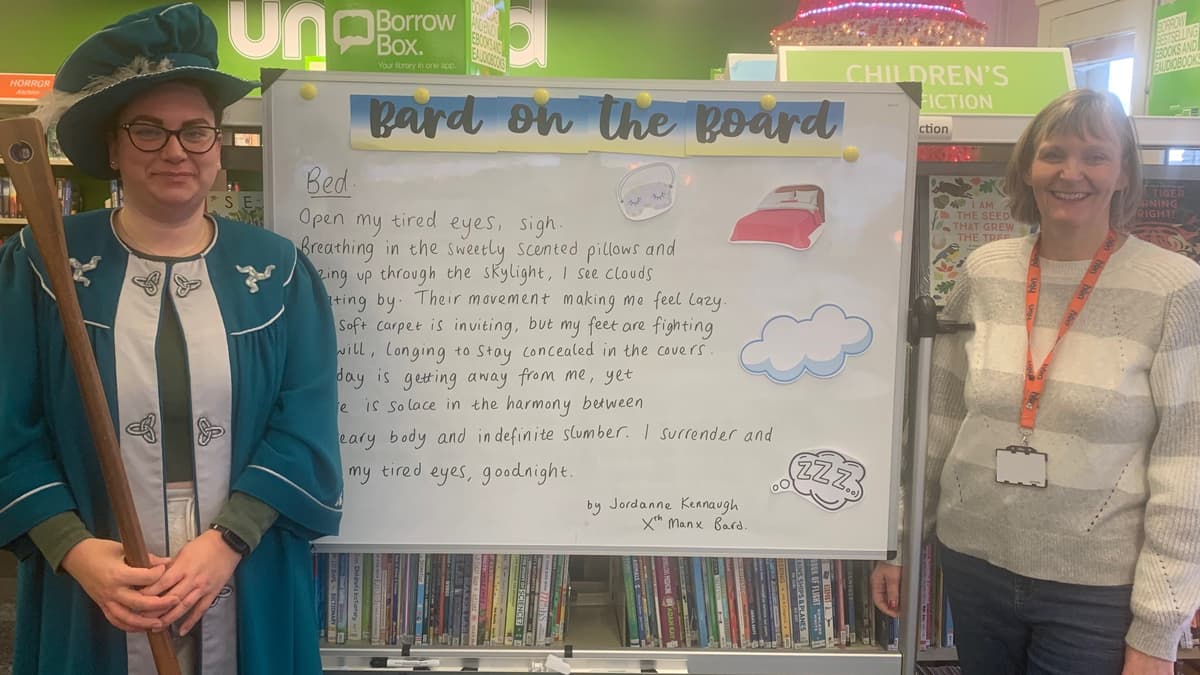 un d
Borrow
Box.
Your library in one app.
HORROR
CHILDREN'S
FICTION
ction
Bard on the Board
Bed.
Open my tired eyes, sigh.
Breathing in the sweetly scented pillows and
zing up through the skylight, I see clouds
ting by. Their movement making me feel lazy.
soft carpet is inviting, but my feet are fighting
will, longing to stay concealed in the covers.
day is getting away from me, yet
e is solace in the harmony between
eary body and indefinite slumber. I surrender and
my tired eyes, goodnight.
by Jordanne Kennaugh
Xth Manx Bard.
ZZZ..
I AM
THE SEED
THAT GREW
THE TREE
TIGER
RNING
RIGHT!
BORROW
BESTSELLING
EBOOKS AND
EAUDIOBOOKS